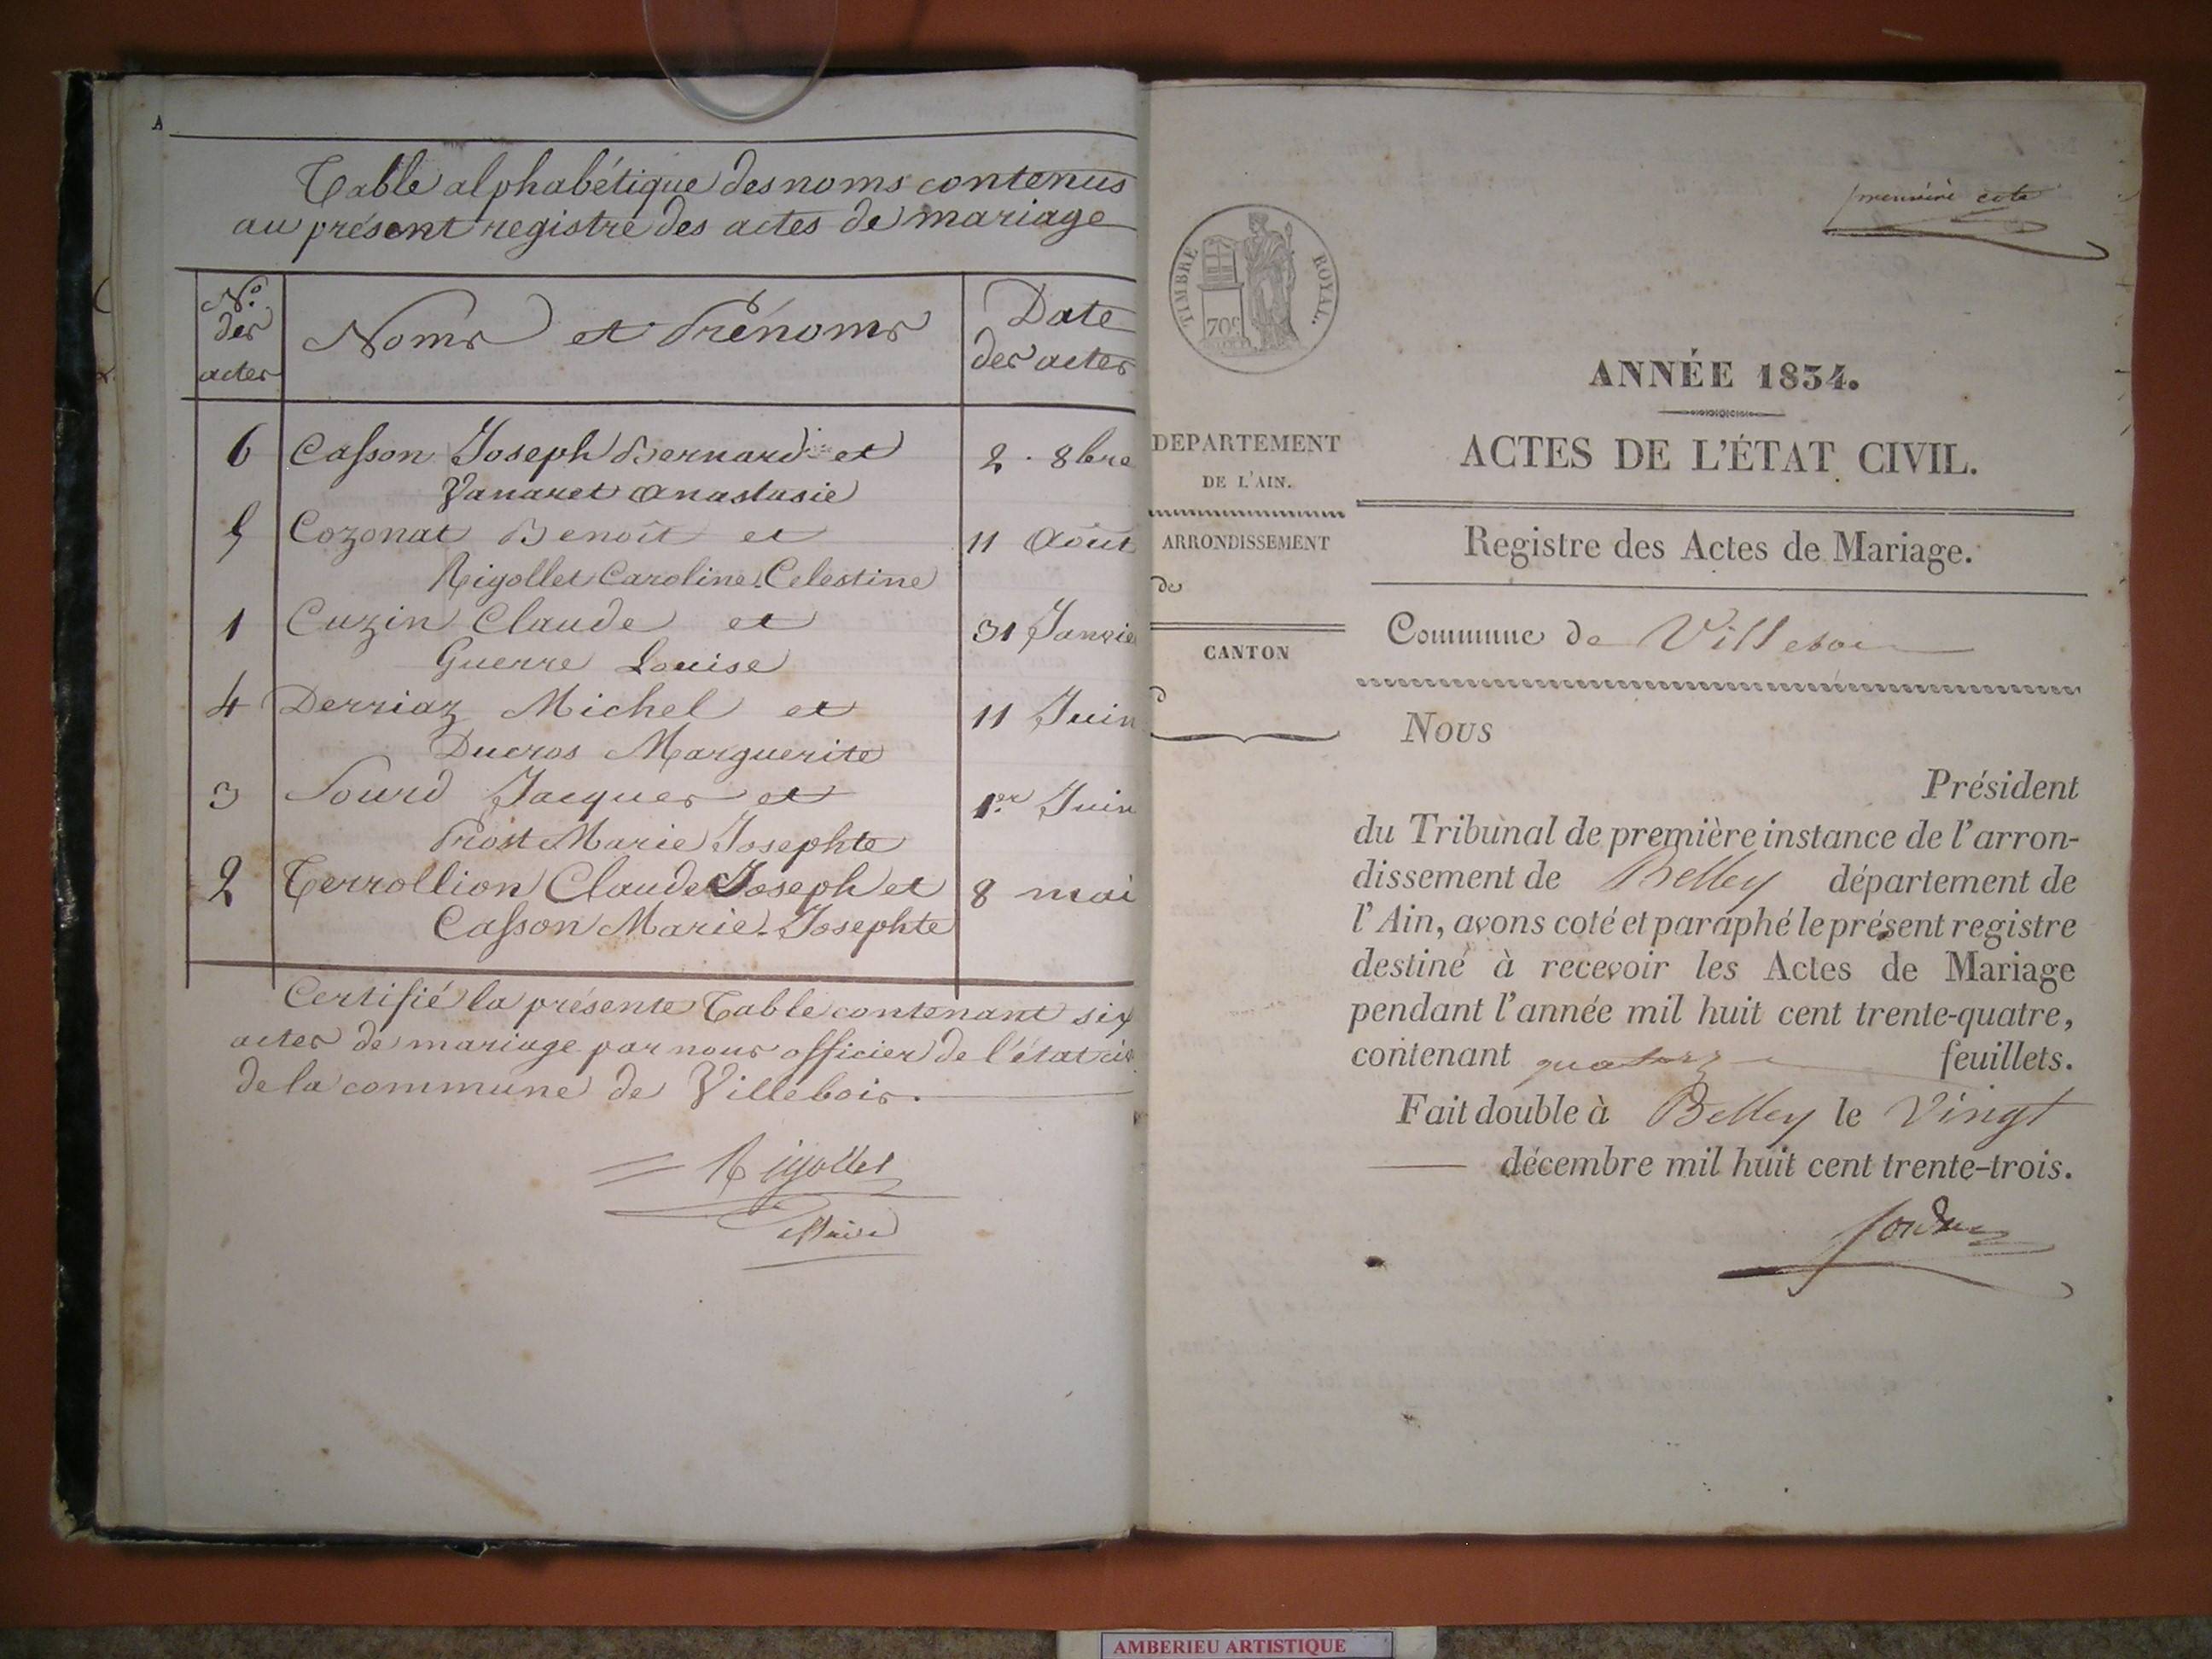 A
Table alphabétique des noms contenus
au présent registre des actes de mariage
N.º des actes
Noms et Prénoms
Date des actes
6 Casson Joseph Bernard et 2 . 8bre
Vanaret Anastasie
5 Cozonat Benoît et 11 Août
Rigollet Caroline Celestine
1 Cuzin Claude et 31 Janvie
Guerre Louise
4 Derriaz Michel et 11 Juin
Ducros Marguerite
3 Sourd Jacques et 1.er Juin
Prost Marie Josephte
2 Terrollion Claude Joseph et 8 mai
Casson Marie-Josephte
Certifié la présente Table contenant six
actes de mariage par nous officier de l'état civ
de la commune de Villebois.
Rigollet
Maire
première cote
TIMBRE ROYAL.
70c
ANNÉE 1834.
DEPARTEMENT
DE L'AIN.
ARRONDISSEMENT
de
CANTON
d
ACTES DE L'ÉTAT CIVIL.
Registre des Actes de Mariage.
Commune de Villebois
Nous
Président
du Tribunal de première instance de l'arron-
dissement de Belley département de
l'Ain, avons coté et paraphé le présent registre
destiné à recevoir les Actes de Mariage
pendant l'année mil huit cent trente-quatre,
contenant quatorze feuillets.
Fait double à Belley le Vingt
décembre mil huit cent trente-trois.
AMBERIEU ARTISTIQUE